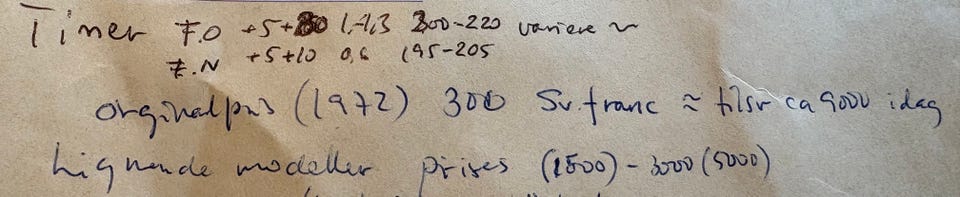 Timer F.O +5+30 1,-1,3 200-220 variere
F.N +5+10 0,6 195-205
orginalpris (1972) 300 Sv. franc ≈ tilsv ca 9000 idag
Lignende modeller prises (1500) - 3000 (5000)